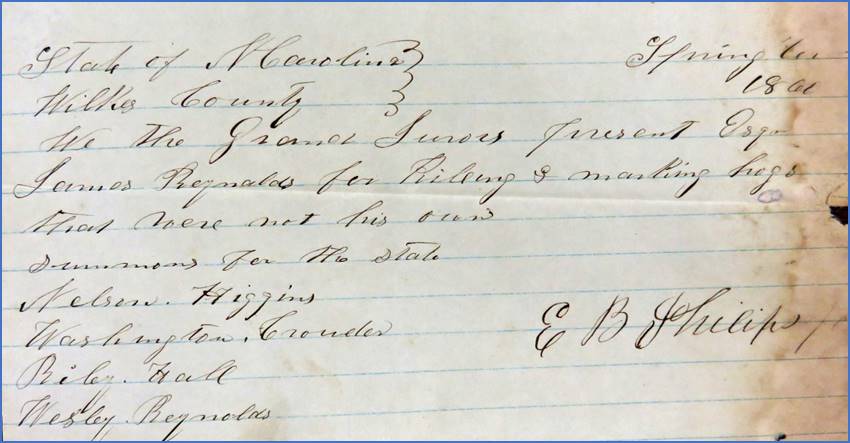 State of N Carolina } Spring Ter
Wilkes County } 1860
We the Grand Jurors present Esqr
James Reynalds for Killing & marking hogs
that were not his own
summons for the state
Nelson. Higgins
Washington. Crouder
Riley. Hall
E B Philips
Wesley. Reynolds